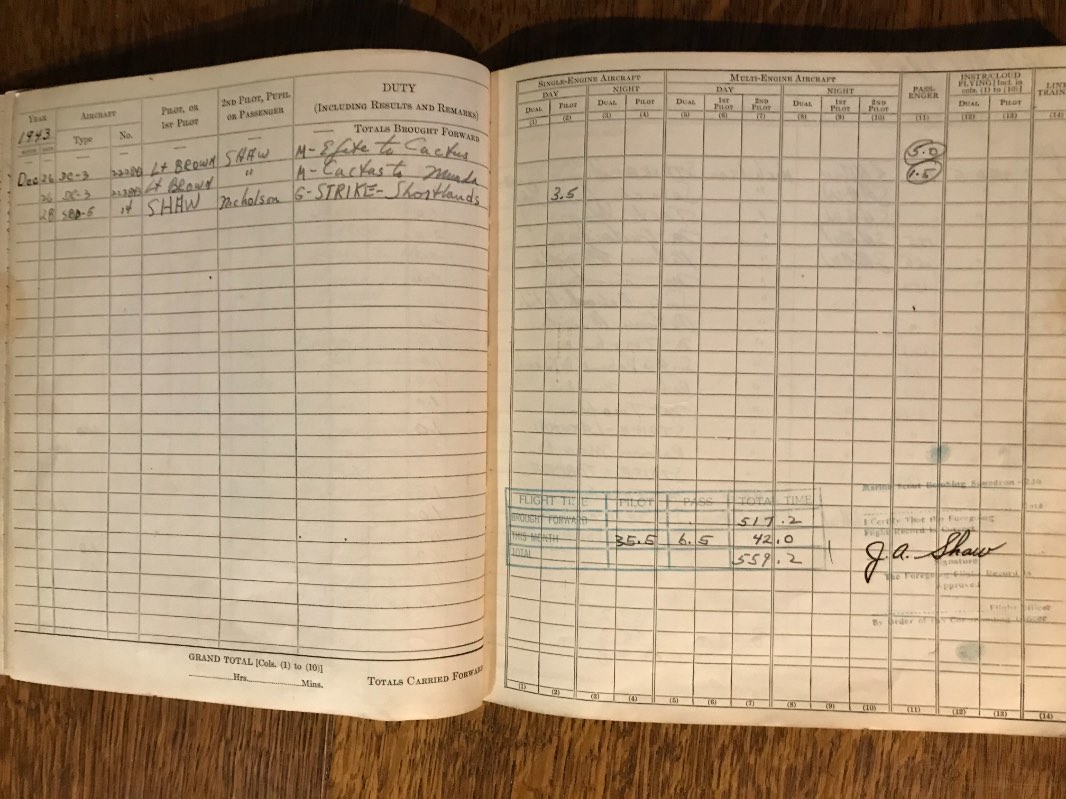 YEAR AIRCRAFT PILOT, OR 1ST PILOT 2ND PILOT, PUPIL OR PASSENGER DUTY (INCLUDING RESULTS AND REMARKS)
1943 Type No.
TOTALS BROUGHT FORWARD
Dec 26 DC-3 Lt BROWN SHAW M- Efite to Cactus
26 DC-3 Lt BROWN " M- Cactus to Munda
28 SBD-5 14 SHAW Nicholson G-STRIKE- Shortlands
GRAND TOTAL [Cols. (1) to (10)]
Hrs. Mins.
TOTALS CARRIED FORWARD
SINGLE-ENGINE AIRCRAFT MULTI-ENGINE AIRCRAFT PASSENGER INSTR/CLOUD FLYING [Incl. in cols. (1) to (10)] LINK TRAINER
DAY NIGHT DAY NIGHT
DUAL PILOT DUAL PILOT DUAL 1ST PILOT 2ND PILOT DUAL 1ST PILOT 2ND PILOT DUAL PILOT
(1) (2) (3) (4) (5) (6) (7) (8) (9) (10) (11) (12) (13) (14)
5.0
1.5
3.5
FLIGHT TIME PILOT PASS TOTAL TIME
BROUGHT FORWARD 517.2
THIS MONTH 35.5 6.5 42.0
TOTAL 559.2
Marine Scout Bombing Squadron
I Certify That the Foregoing
Flight Record is Correct
J.A. Shaw
Signature
The Foregoing Flight Record is
Approved
Flight Officer
By Order of the Commanding Officer
(1) (2) (3) (4) (5) (6) (7) (8) (9) (10) (11) (12) (13) (14)